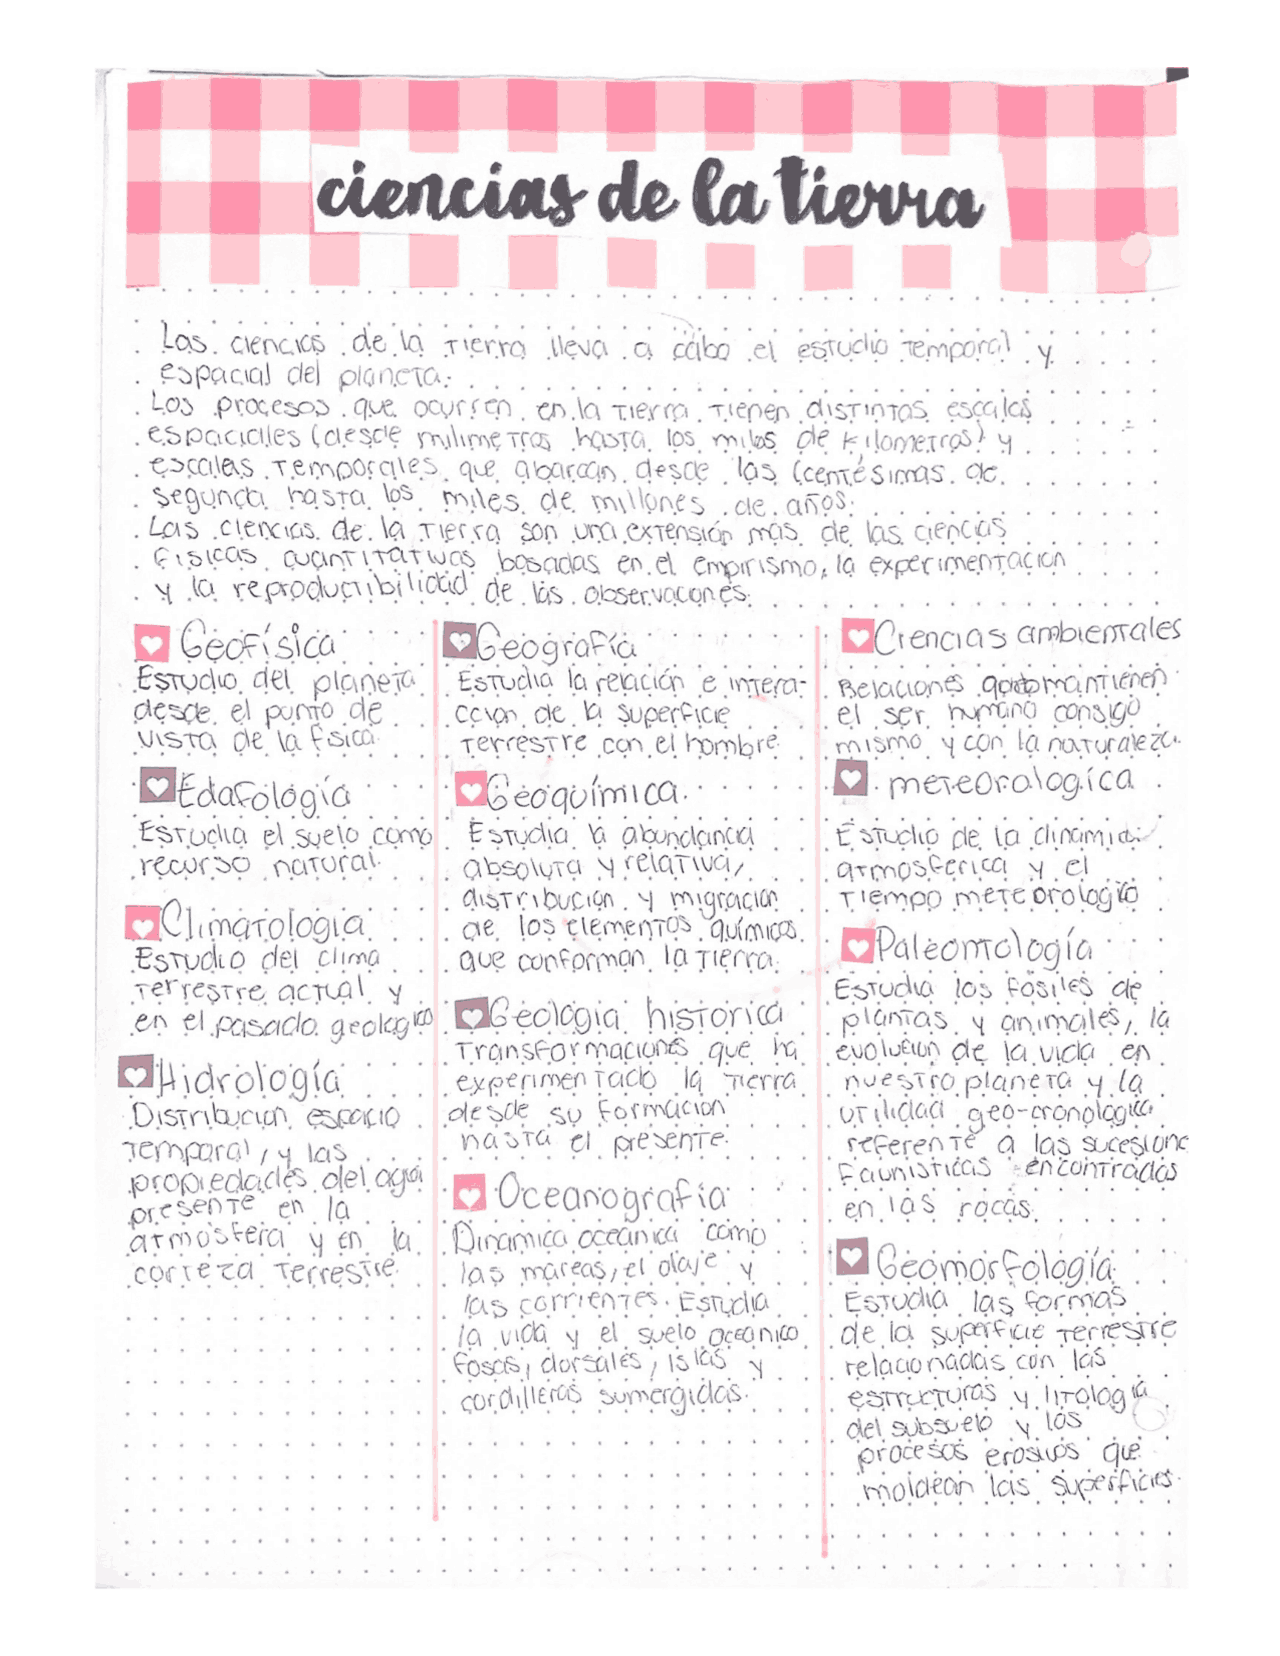 ciencias de la tierra
Las ciencias de la Tierra lleva a cabo el estudio temporal y
espacial del planeta.
Los procesos que ocurren en la Tierra tienen distintas escalas
espaciales (desde milimetros hasta los miles de kilometros) y
escalas temporales que abarcan desde las (centésimas de
segundo hasta los miles de millones de años.
Las ciencias de la Tierra son una extensión mas de las ciencias
fisicas cuantitativas basadas en el empirismo, la experimentacion
y la reproductibilidad de las observaciones.
Geofísica
Estudio del planeta
desde el punto de
vista de la fisica.
Edafología
Estudia el suelo como
recurso natural.
Climatologia
Estudio del clima
terrestre actual y
en el pasado geologico
Hidrología
Distribucion espacio
temporal, y las
propiedades del agua
presente en la
atmosfera y en la
corteza terrestre.
Geografía
Estudia la relación e intera-
ccion de la superficie
terrestre con el hombre.
Geoquímica.
Estudia la abundancia
absoluta y relativa,
distribucion y migracion
de los elementos químicos
que conforman la Tierra.
Geologia historica
Transformaciones que ha
experimentado la Tierra
desde su formacion
hasta el presente.
Oceanografia
Dinamica oceanica como
las mareas, el olaje y
las corrientes. Estudia
la vida y el suelo oceanico
fosas, dorsales, islas y
cordilleras sumergidas.
Ciencias ambientales
Relaciones mantienen
el ser humano consigo
mismo y con la naturaleza.
meteorologica
Estudio de la dinamica
atmosferica y el
tiempo meteorologico
Paleontología
Estudia los fosiles de
plantas y animales, la
evolucion de la vida en
nuestro planeta y la
utilidad geo-cronologica
referente a las sucesione
faunisticas encontradas
en las rocas.
Geomorfología
Estudia las formas
de la superficie terrestre
relacionadas con las
estructuras y litologia
del subsuelo y los
procesos erosivos que
moldean las superficies.